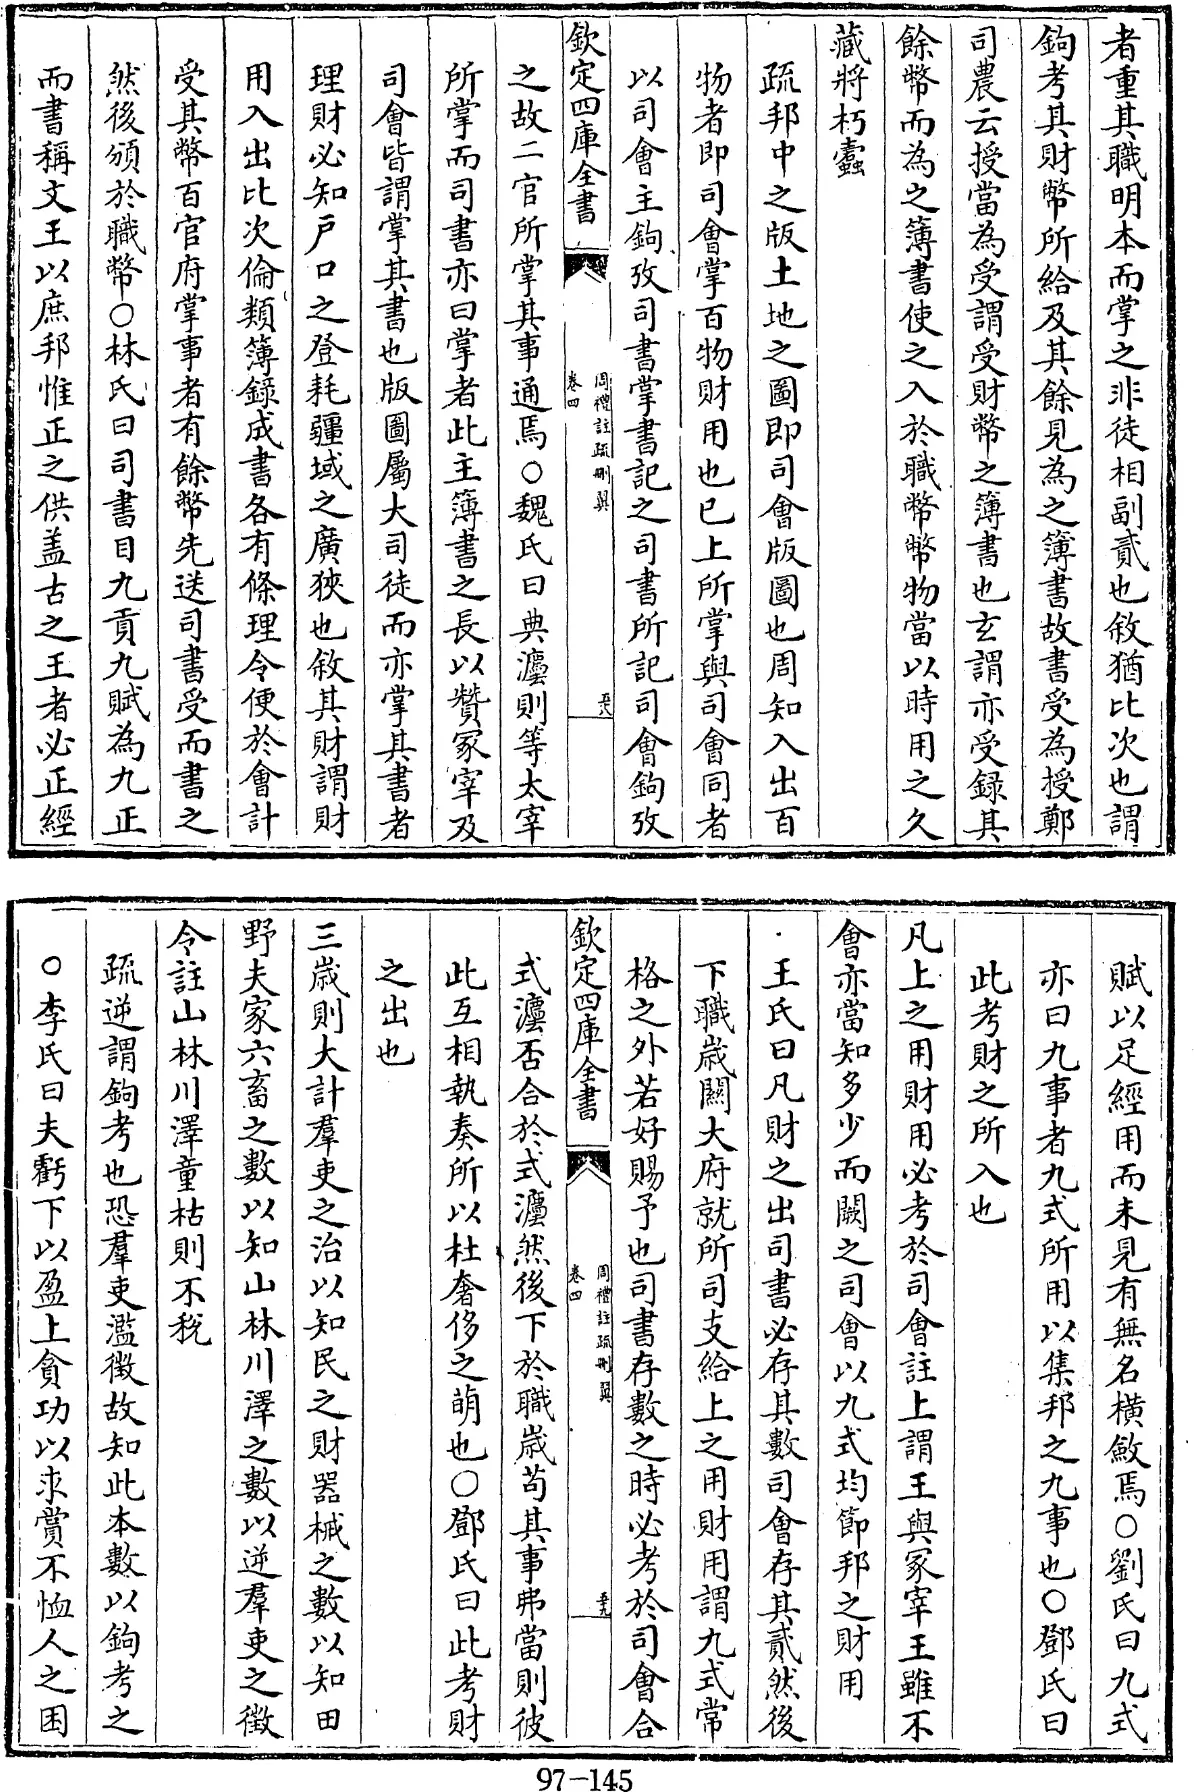 者重其職明本而掌之非徒相副貳也敘猶比次也謂
鉤考其財幣所給及其餘見為之簿書故書受為授鄭
司農云授當為受謂受財幣之簿書也玄謂亦受録其
餘幣而為之簿書使之入於職幣幣物當以時用之久
藏將朽蠹
疏邦中之版土地之圖即司會版圖也周知入出百
物者即司會掌百物財用也已上所掌與司會同者
以司會主鉤攷司書掌書記之司書所記司會鉤攷
欽定四庫全書
周禮註疏刪翼
卷四
之故二官所掌其事通焉○魏氏曰典灋則等太宰
所掌而司書亦曰掌者此主簿書之長以贊冢宰及
司會皆謂掌其書也版圖屬大司徒而亦掌其書者
理財必知戸口之登耗疆域之廣狹也敘其財謂財
用入出比次倫類簿錄成書各有條理令便於會計
受其幣百官府掌事者有餘幣先送司書受而書之
然後頒於職幣○林氏曰司書目九貢九賦為九正
而書稱文王以庶邦惟正之供盖古之王者必正經
賦以足經用而未見有無名橫斂焉○劉氏曰九式
亦曰九事者九式所用以集邦之九事也○鄧氏曰
此考財之所入也
凡上之用財用必考於司會註上謂王與冢宰王雖不
會亦當知多少而闕之司會以九式均節邦之財用
王氏曰凡財之出司書必存其數司會存其貳然後
下職歲關大府就所司支給上之用財用謂九式常
格之外若好賜予也司書存數之時必考於司會合
欽定四庫全書
周禮註疏刪翼
卷四
式灋否合於式灋然後下於職歲苟其事弗當則彼
此互相執奏所以杜奢侈之萌也○鄧氏曰此考財
之出也
三歲則大計羣吏之治以知民之財器械之數以知田
野夫家六畜之數以知山林川澤之數以逆羣吏之徵
令註山林川澤童枯則不稅
疏逆謂鉤考也恐羣吏濫徵故知此本數以鉤考之
○李氏曰夫虧下以盈上貪功以求賞不恤人之困
97-145